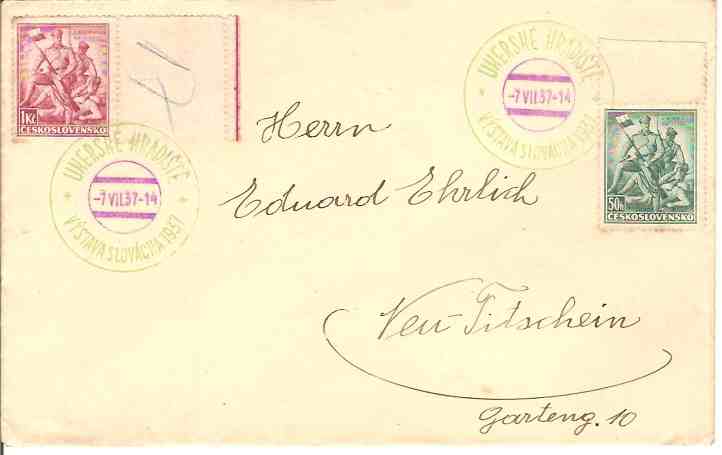 1Kč
ČESKOSLOVENSKO
UHERSKÉ HRADIŠTĚ
-7 VII.37-14
VÝSTAVA SLOVÁCKA 1937
UHERSKÉ HRADIŠTĚ
-7 VII.37-14
VÝSTAVA SLOVÁCKA 1937
50h
ČESKOSLOVENSKO
Herrn
Eduard Ehrlich
Neu-Titschein
Garteng. 10